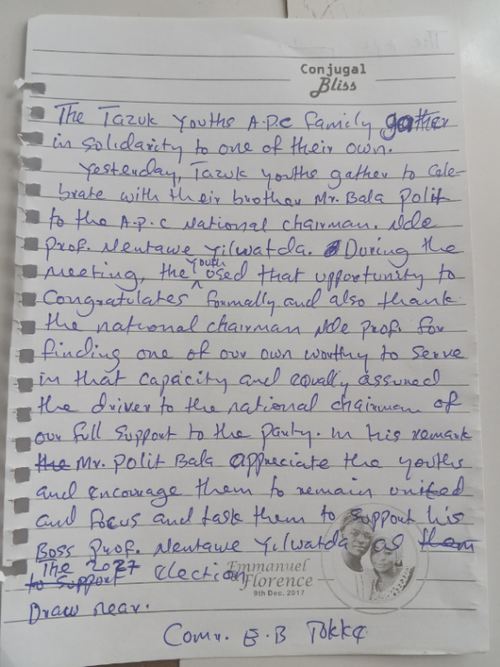 Conjugal
Bliss
The Tazuk youths A.P.C family gather
in solidarity to one of their own.
Yesterday, Tazuk youths gather to Cele-
brate with their brother Mr. Bala Polit
to the A.P.C National chairman. Nde
Prof. Nentawe Yilwatda. During the
meeting, the youth used that upportunity to
Congratulates formally and also thank
the national chairman Nde prof. for
finding one of our own worthy to serve
in that capacity and equally assured
the driver to the national chairman of
our full support to the party. in his remark
the Mr. Polit Bala appreciate the youths
and encourage them to remain united
and focus and task them to support his
Boss Prof. Nentawe Yilwatda as them
The 2027
to support election
Draw near.
Emmanuel
Florence
9th Dec. 2017
Comr. E.B Tokk